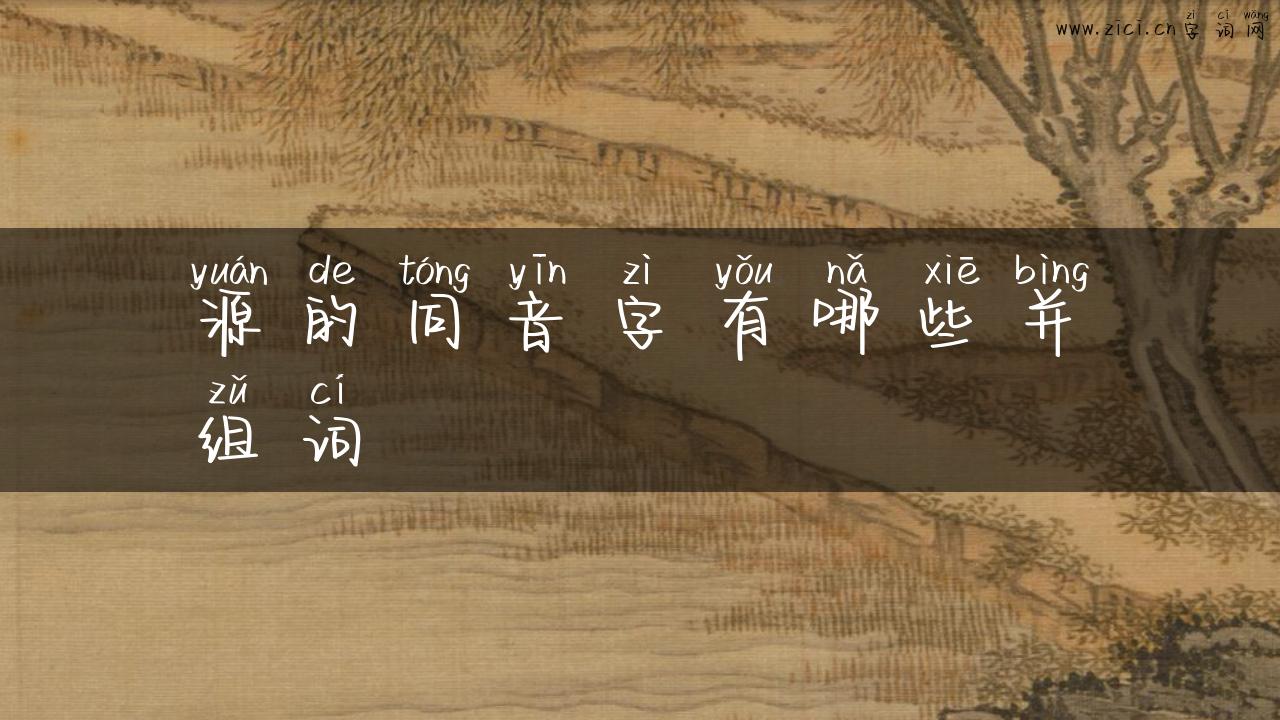 zì cí wǎng
www.zici.cn字词网
yuán de tóng yīn zì yǒu nǎ xiē bìng
源的同音字有哪些并
zǔ cí
组词